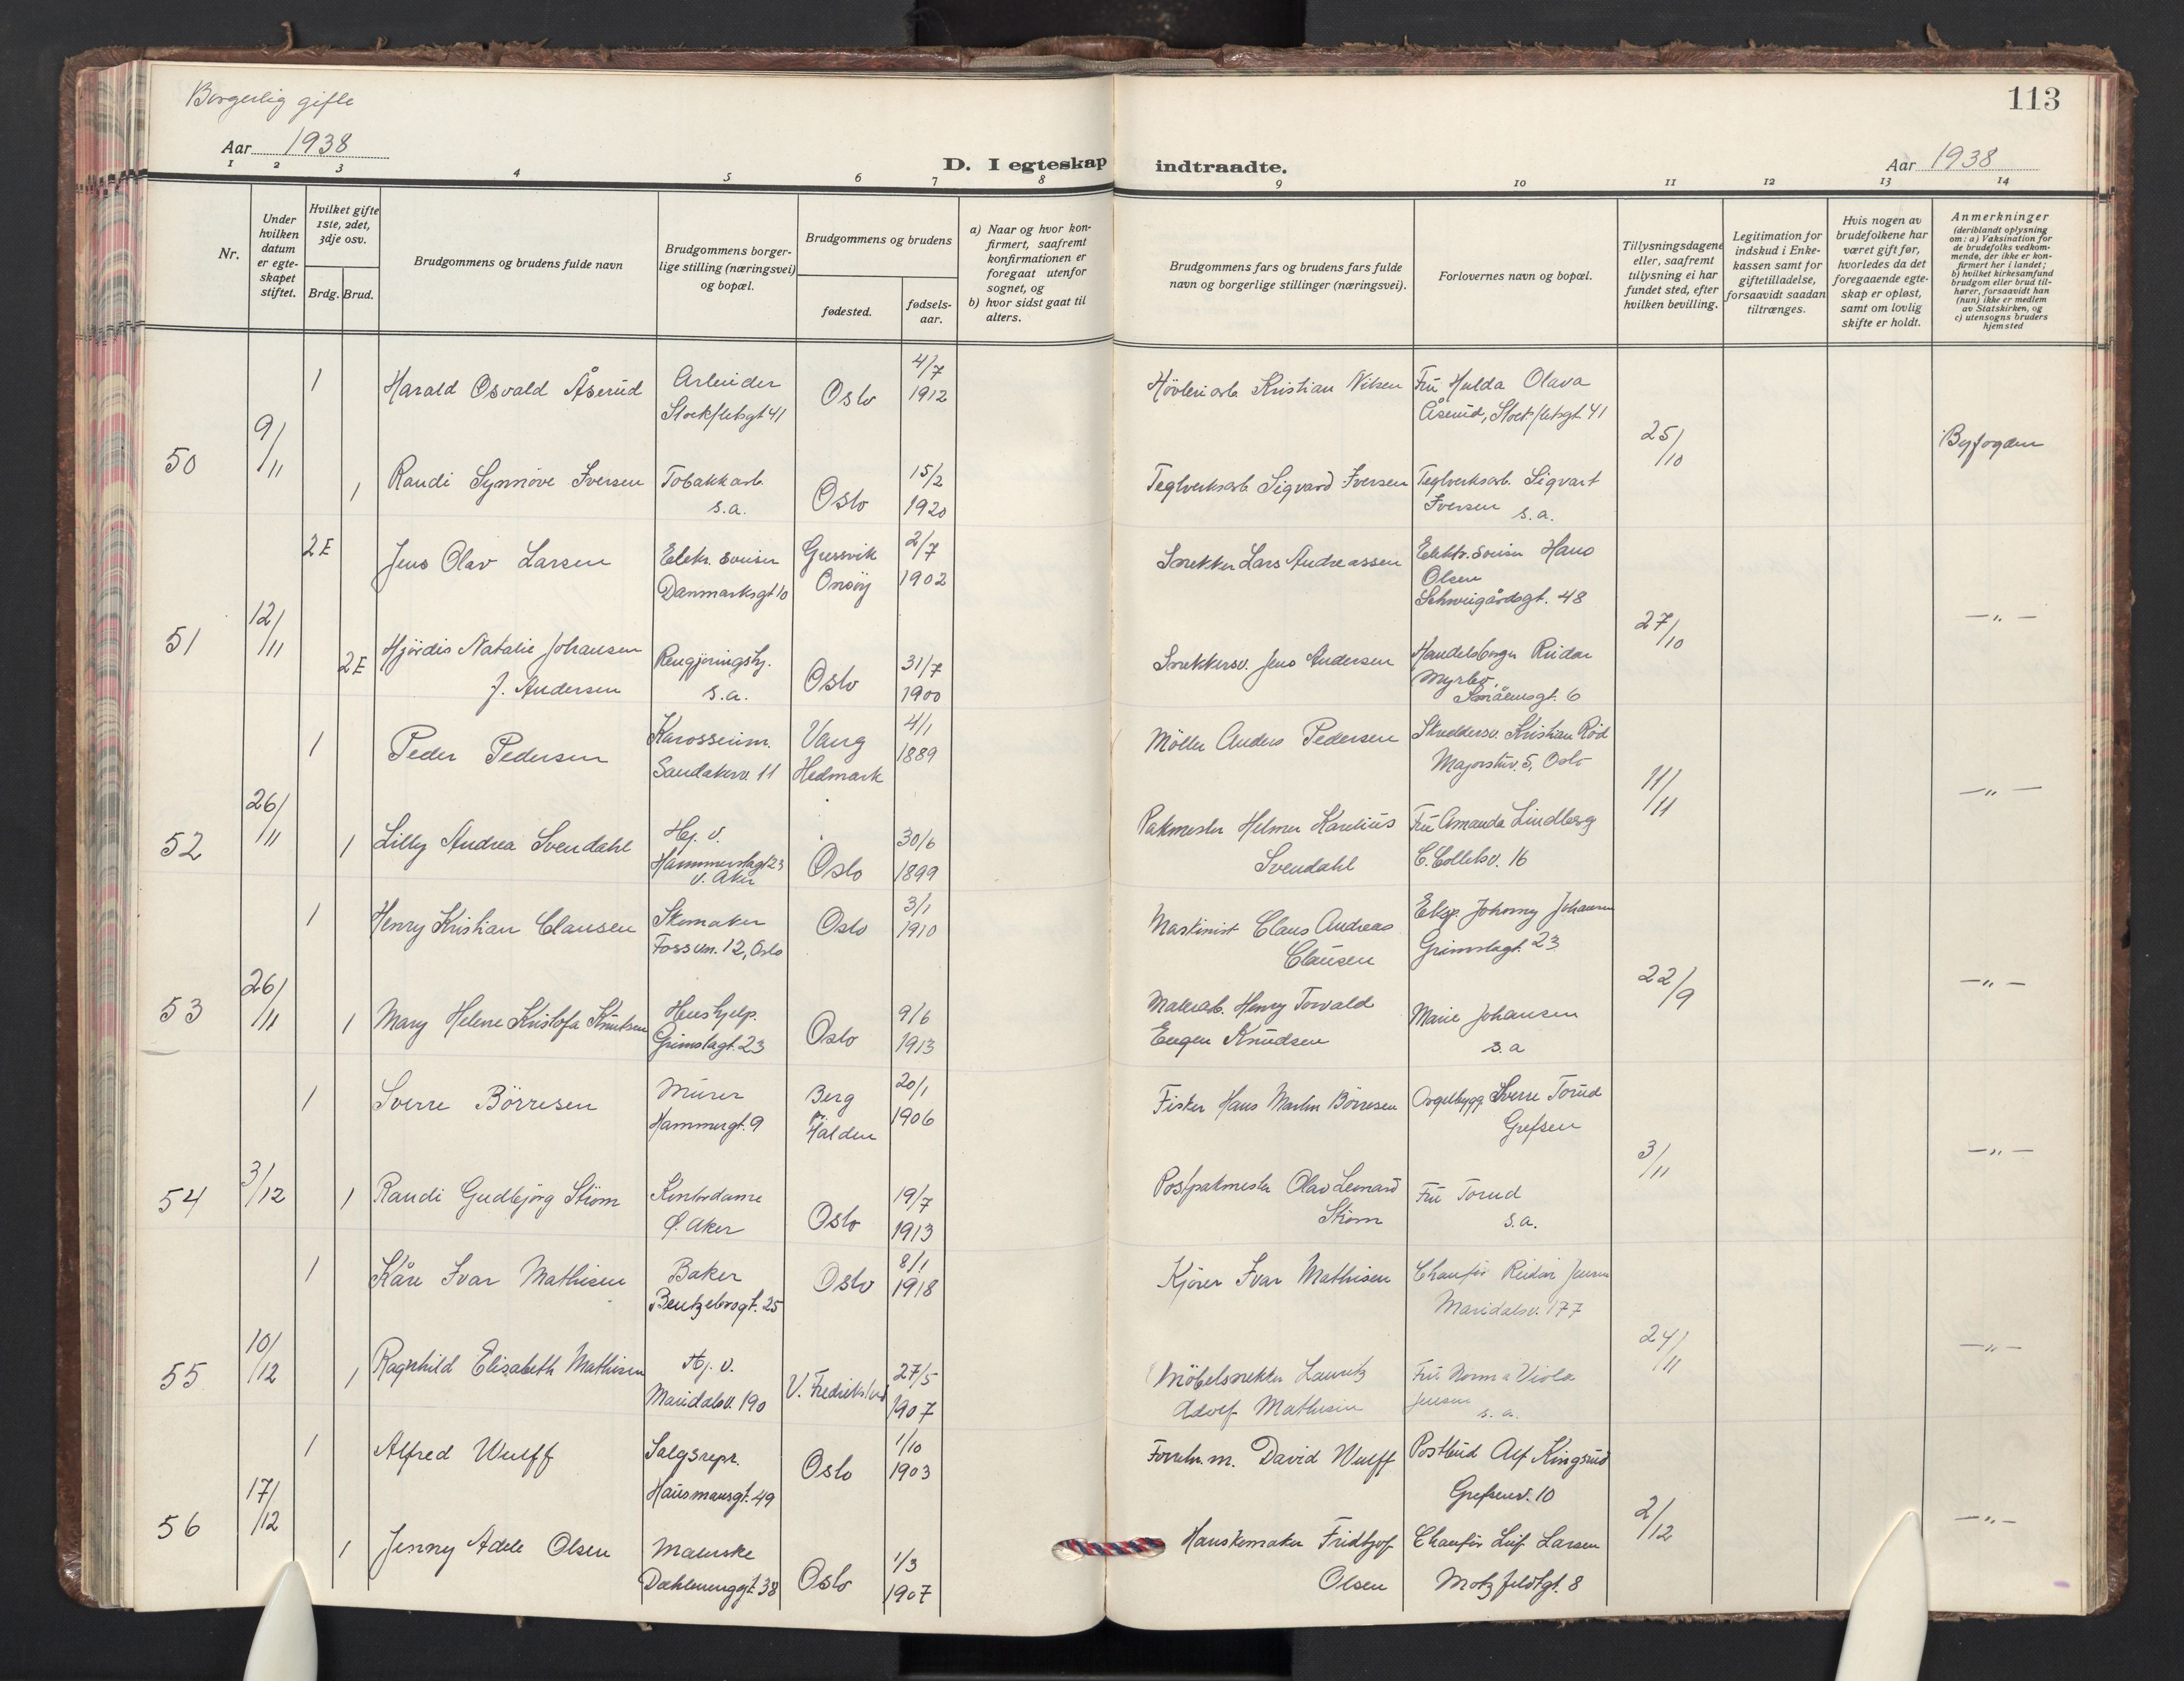 Borgerlig gifte
113
Aar 1938
D. I egteskap indtraadte.
Aar 1938
1 2 3 4 5 6 7 8 9 10 11 12 13 14
Nr.
Under hvilken datum er egteskapet stiftet.
Hvilket gifte 1ste, 2det, 3dje osv.
Brdg. Brud.
Brudgommens og brudens fulde navn
Brudgommens borgerlige stilling (næringsvei) og bopæl.
Brudgommens og brudens
fødested.
fødselsaar.
a) Naar og hvor konfirmert, saafremt konfirmationen er foregaat utenfor sognet, og
b) hvor sidst gaat til alters.
Brudgommens fars og brudens fars fulde navn og borgerlige stillinger (næringsvei).
Forlovernes navn og bopæl.
Tillysningsdagene eller, saafremt tillysning ei har fundet sted, efter hvilken bevilling.
Legitimation for indskud i Enkekassen samt for giftetilladelse, forsaavidt saadan tiltrænges.
Hvis nogen av brudefolkene har været gift før, hvorledes da det foregaaende egteskap er opløst, samt om lovlig skifte er holdt.
Anmerkninger
(deriblandt oplysning om: a) Vaksination for de brudefolks vedkommende, der ikke er konfirmert her i landet; b) hvilket kirkesamfund brudgom eller brud tilhører, forsaavidt han (hun) ikke er medlem av Statskirken, og c) utensogns bruders hjemsted
50 9/11 25/10 Byfogden
1 Harald Osvald Åserud Arbeider Stockfletsgt 41 Oslo 4/7 1912 Høvleriarb. Kristian Nilsen Fru Hulda Olava Åserud, Stockfletsgt 41
1 Randi Synnøve Iversen Tobakkarb. s.a. Oslo 15/2 1920 Teglverksarb. Sigvard Iversen Teglverksarb. Sigvart Iversen s.a.
51 12/11 27/10 —"—
2 E Jens Olav Larsen Danmarksgt 10 Onsøy 2/7 1902 Snekker Lars Andreassen Hans Olsen Schweigårdsgt. 48
2 E Hjørdis Natalie Johansen f. Andersen Rengjøringshj. s.a. Oslo 31/7 1900 Snekkersv. Jens Andersen Reidar Smålensgt. 6
52 26/11 11/11 —"—
1 Peder Pedersen Sandakerv. 11 Vang Hedmark 4/1 1889 Møller Anders Pedersen Skreddersv. Kristian Rød Majorstuv. 5, Oslo
1 Lilly Andrea Svendahl Hj. v. V. Aker Oslo 30/6 1899 Pakmester Helmer Karelius Svendahl Fru Amanda Lindberg C. Colletsv. 16
53 26/11 22/9 —"—
1 Henry Kristian Clausen Skomaker Fossvn. 12, Oslo Oslo 3/1 1910 Maskinist Claus Andreas Clausen Johnny Johansen Grimstagt. 23
1 Mary Helene Kristofa Knutsen Hushjelp. Grimstagt. 23 Oslo 9/6 1913 Malerarb. Henry Torvald Eugen Knudsen Marie Johansen s.a
54 3/12 3/11 —"—
1 Sverre Børresen Murer Hammergt. 9 Berg pr. Halden 20/1 1906 Fisker Hans Martin Børresen Orgelbygg. Sverre Torud Grefsen
1 Randi Gudbjørg Strøm Kontordame Ø. Aker Oslo 19/7 1913 Postpakmester Olav Leonard Strøm Fru Torud s.a.
55 10/12 24/11 —"—
1 Kåre Ivar Mathisen Baker Bentsebrogt. 25 Oslo 8/1 1918 Kjører Ivar Mathisen Chaufør Reidar Jensen Maridalsv. 177
1 Ragnhild Elisabeth Mathisen Hj. v. Maridalsv. 190 V. Fredrikstad 27/5 1907 Møbelsnekker Lauritz Adolf Mathisen Fru Norma Viola Jensen s.a.
56 17/12 2/12 —"—
1 Alfred Wulff Salgsrepr. Hausmansgt. 49 Oslo 1/10 1903 Forretn. m. David Wulff Postbud Alf Kingsrud Grefsenv. 10
1 Jenny Adele Olsen Malerske Dæhlenenggt. 38 Oslo 1/3 1907 Hanskemaker Fridtjof Olsen Chaufør Leif Larsen Motzfeldtgt. 8